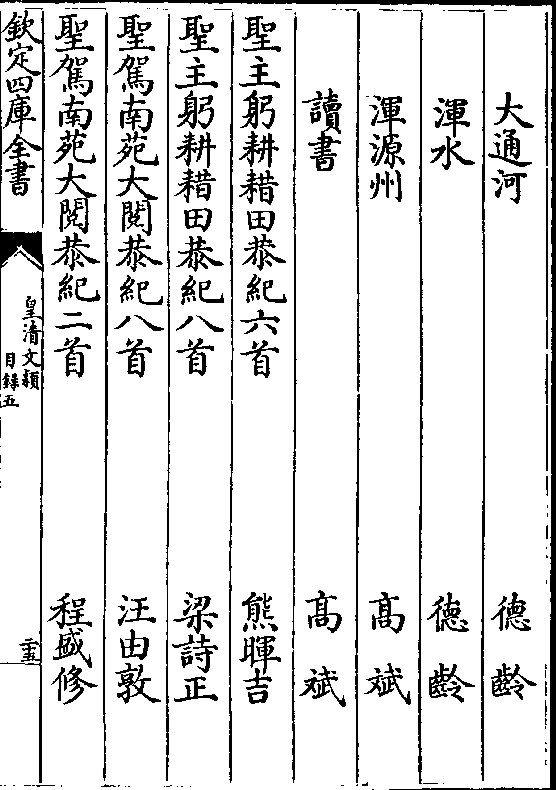 大通河　德齡
渾水　德齡
渾源州　高斌
讀書　高斌
聖主躬耕耤田恭紀六首　熊暉吉
聖主躬耕耤田恭紀八首　梁詩正
聖駕南苑大閱恭紀八首　汪由敦
聖駕南苑大閱恭紀二首　程盛修
欽定四庫全書
皇清文穎
目錄五
二十五